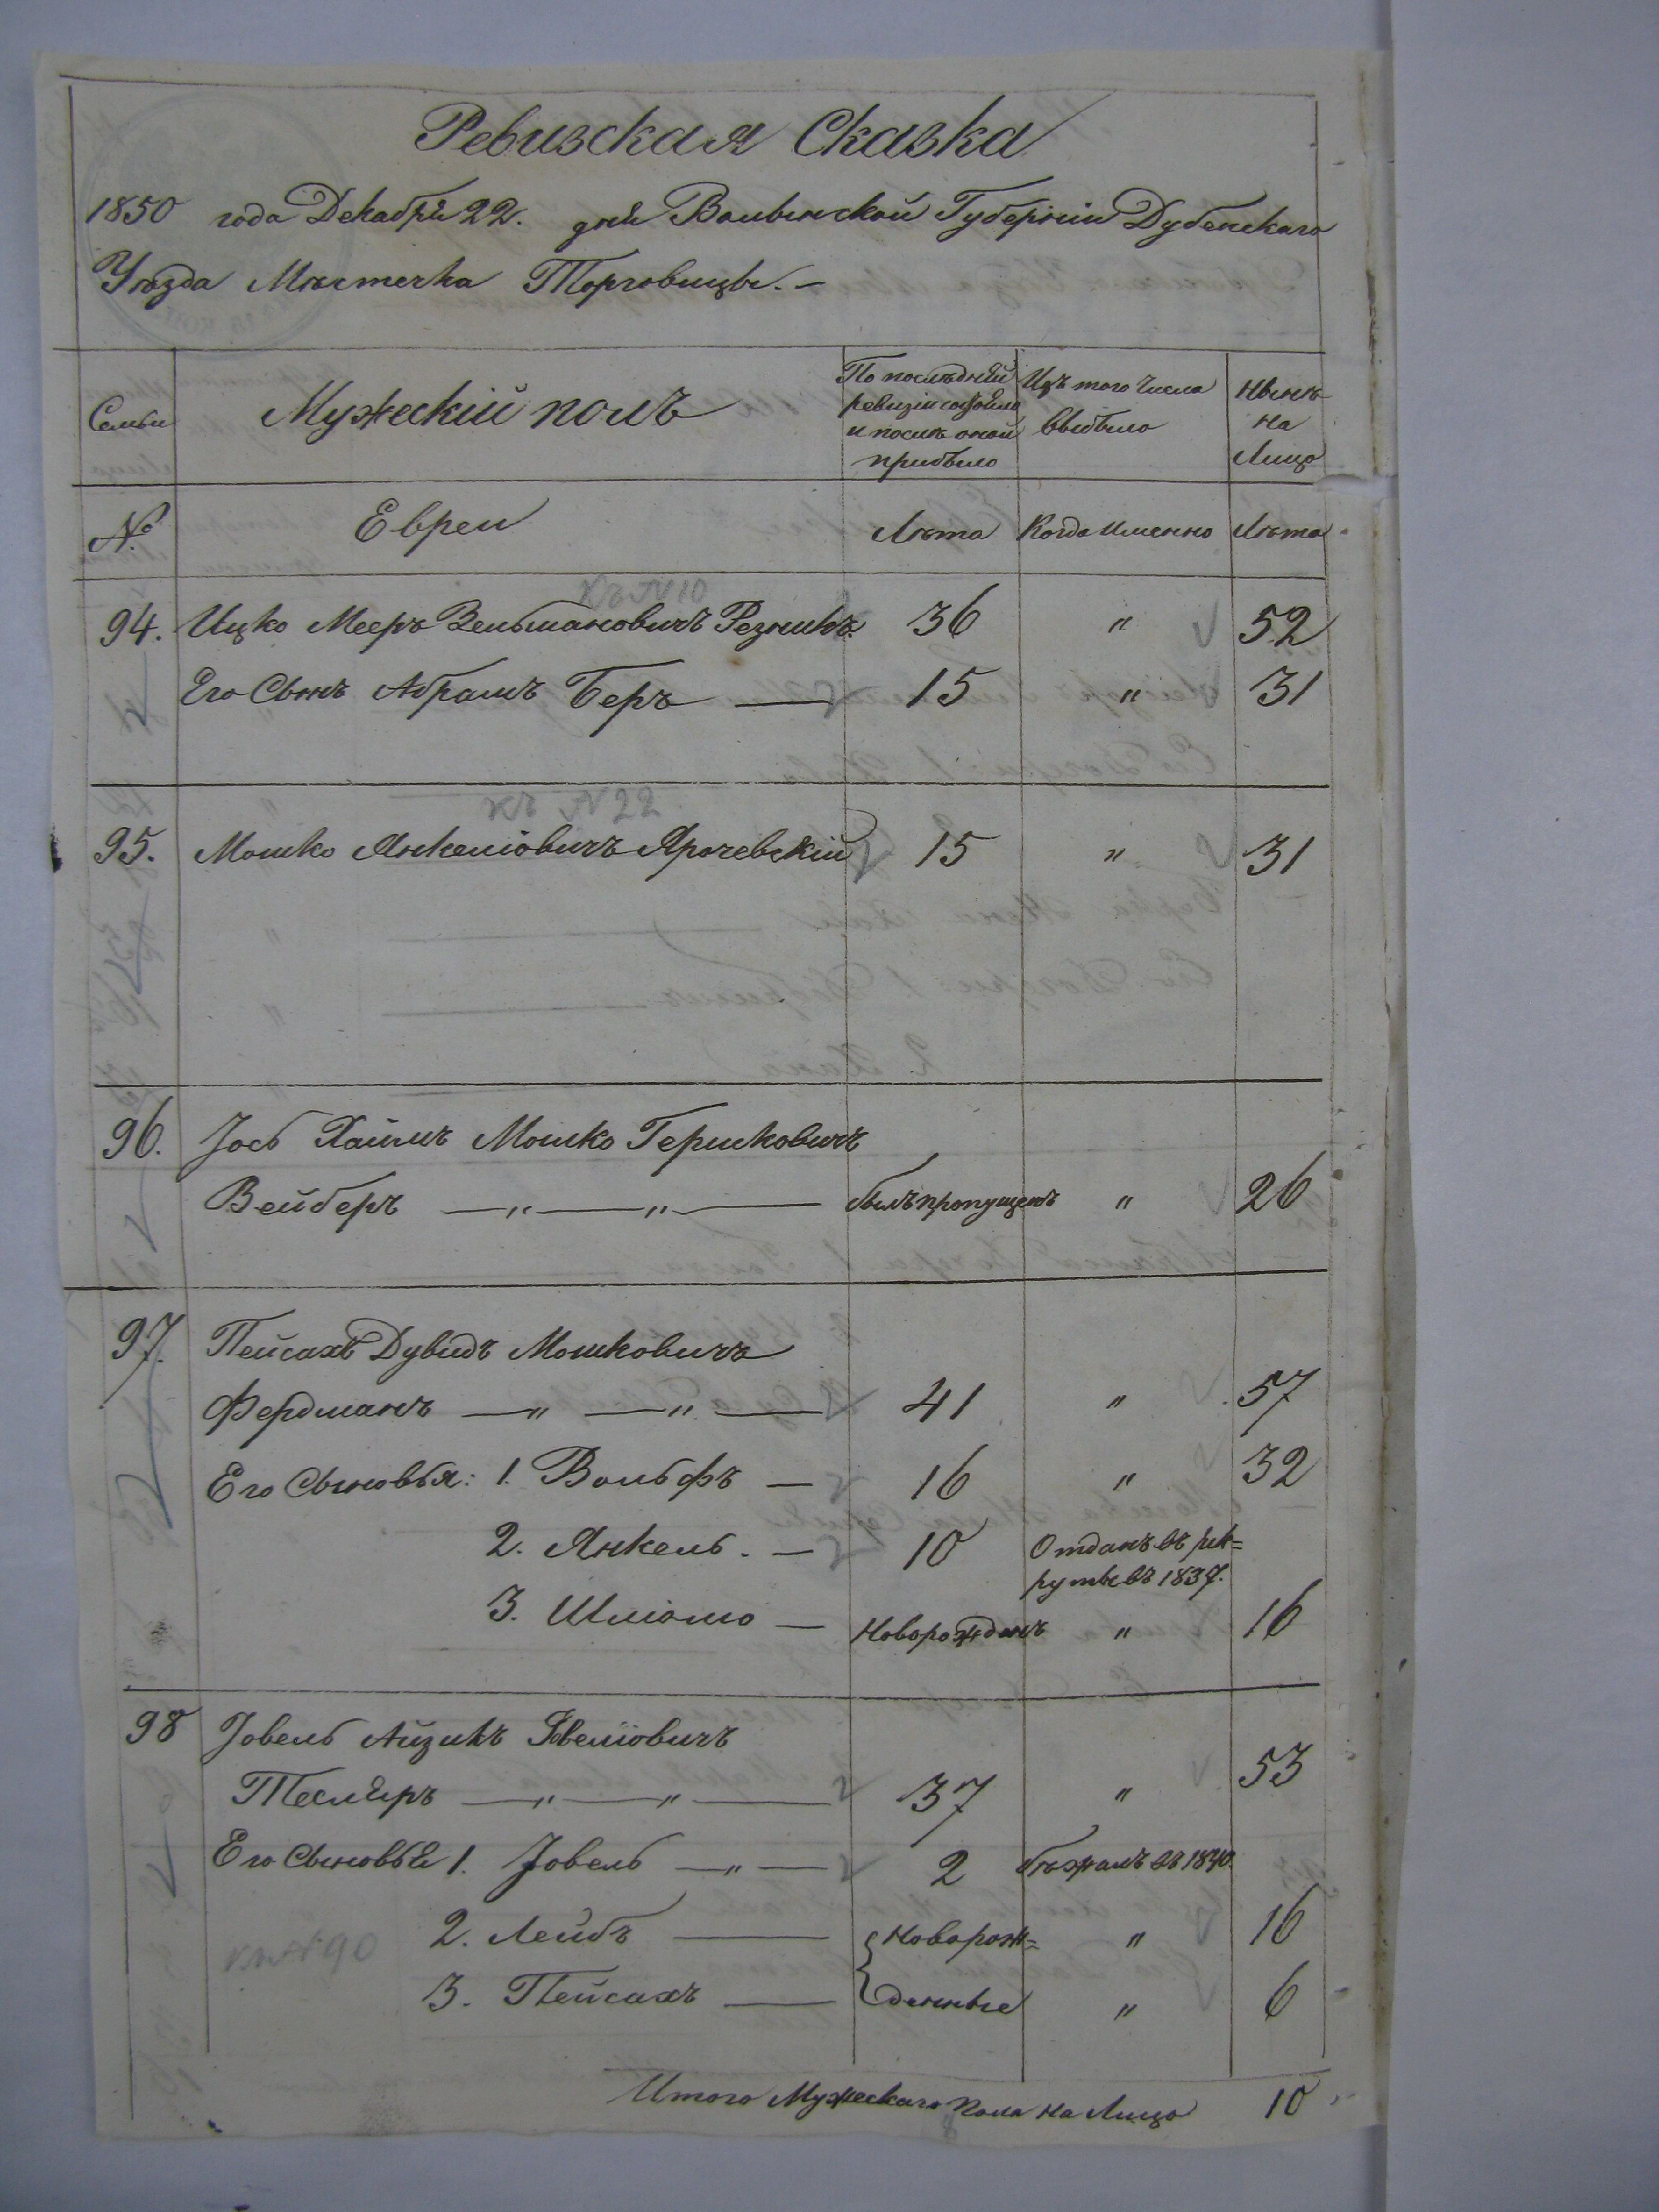 Ревизская Сказка
1850 года Декабря 22. дня Волынской Губернiи Дубенскаго
Уѣзда Мѣстечка Торговицы. –
Семьи
Мужескiй полъ
По послѣдней
ревизiи состояло
и послѣ оной
прибыло
Изъ того числа
выбыло
Нынѣ
на
Лицо
№
Евреи
Лѣта
Когда именно
Лѣта
къ № 10
94. Ицко Мееръ Зельмановичъ Резникъ. 36 " 52
Его Сынъ Абрамъ Беръ — 15 " 31
къ № 22
95. Мошко Янкелiовичъ Ярочевскiй 15 " 31
96. Iось Хаимъ Мошко Гершковичъ
Вейберъ — " — " — былъ пропущенъ " 26
97. Пейсахъ Дувидъ Мошковичъ
Фердманъ — " — " — 41 " 57
Его Сыновья: 1. Вольфъ — 16 " 32
2. Янкель. — 10 Отданъ въ рек=
руты въ 1837.
3. Шлiомо — Новорожденъ " 16
98 Iовель Айзикъ Iовелiовичъ
Теслеръ — " — " — 37 " 53
Его Сыновья 1. Iовель — " — 2 бѣжалъ въ 1840.
2. Лейбъ — Новорож= " 16
къ № 90
3. Пейсахъ — денные " 6
Итого Мужескаго пола на Лицо 10